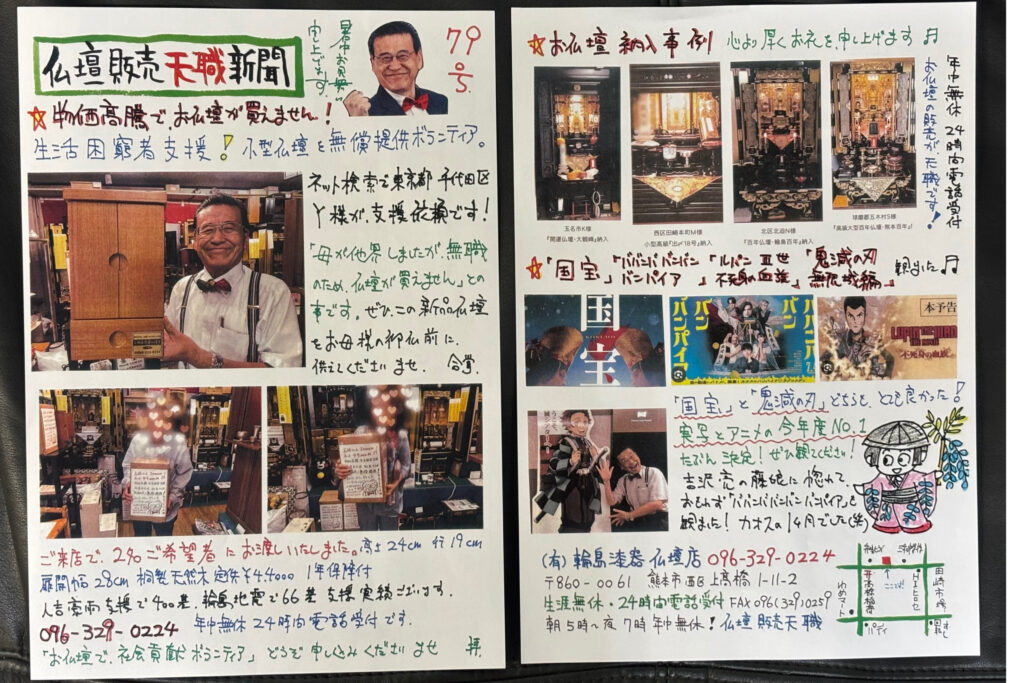 仏壇販売天職新聞
暑中お見舞い
申し上げます
79号.
☆物価高騰で、お仏壇が買えません!
生活困窮者支援!小型仏壇を無償提供ボランティア。
ネット検索で東京都千代田区
Y様が、支援依頼です!
「母が他界しましたが、無職
のため、仏壇が買えません」との
事です。ぜひ、この新品仏壇
をお母様の御仏前に、
供えてくださいませ、合掌、
ご来店で、2名ご希望者にお渡しいたしました。高さ24cm 行19cm
扉開幅28cm 桐製天然木 定価¥44000 1年保障付
人吉豪雨支援で400基、輪島地震で66基支援実績ございます。
096-329-0224 年中無休24時間電話受付です。
「お仏壇で、社会貢献ボランティア」どうぞ申し込みくださいませ 拝、
☆お仏壇納入事例 心より厚くお礼を申し上げます♫
年中無休 24時間電話受付
お仏壇の販売が天職です!
玉名市K様
『開運仏壇・大観峰』納入
西区田崎本町M様
小型高級『出〆18号』納入
北区北迫N様
『百年仏壇・輪島百年』納入
球磨郡五木村S様
『高級大型百年仏壇・熊本百年』納入
☆「国宝」「ババンババンバンバンパイア」「ルパン三世 不死身の血族」「鬼滅の刃 無限城編」観ました♫
国宝
ババンババンバンバンパイア
本予告
LUPIN THE IIIRD
不死身の血族
「国宝」と「鬼滅の刃」どちらも、とても良かった!
実写とアニメの今年度NO.1
たぶん決定!ぜひ観てください!
吉沢亮の藤娘に惚れて、
おもわず「ババンババンバンバンパイア」も
観ました!カオスの1ヶ月でした(笑)
(有)輪島漆器仏壇店 096-329-0224
〒860-0061 熊本市西区上高橋1-11-2
生涯無休・24時間電話受付 FAX096(329)0259
朝5時~夜7時年中無休!仏壇販売天職
ここ!
田崎市場
ゆめマート